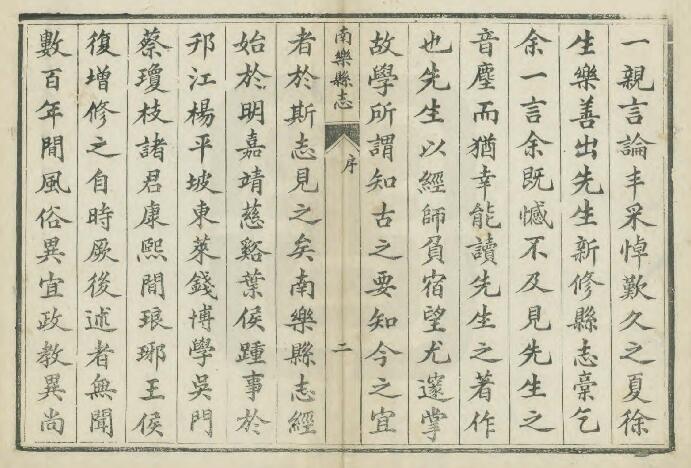 一親言論丰采悼歎久之夏徐
生樂善出先生新修縣志稾乞
余一言余既憾不及見先生之
音塵而猶幸能讀先生之著作
也先生以經師負宿望尤邃掌
故學所謂知古之要知今之宜
南樂縣志
序
二
者於斯志見之矣南樂縣志經
始於明嘉靖慈谿葉侯踵事於
邗江楊平坡東萊錢博學吳門
蔡瓊枝諸君康熙間琅琊王侯
復增修之自時厥後述者無聞
數百年間風俗異宜政教異尚